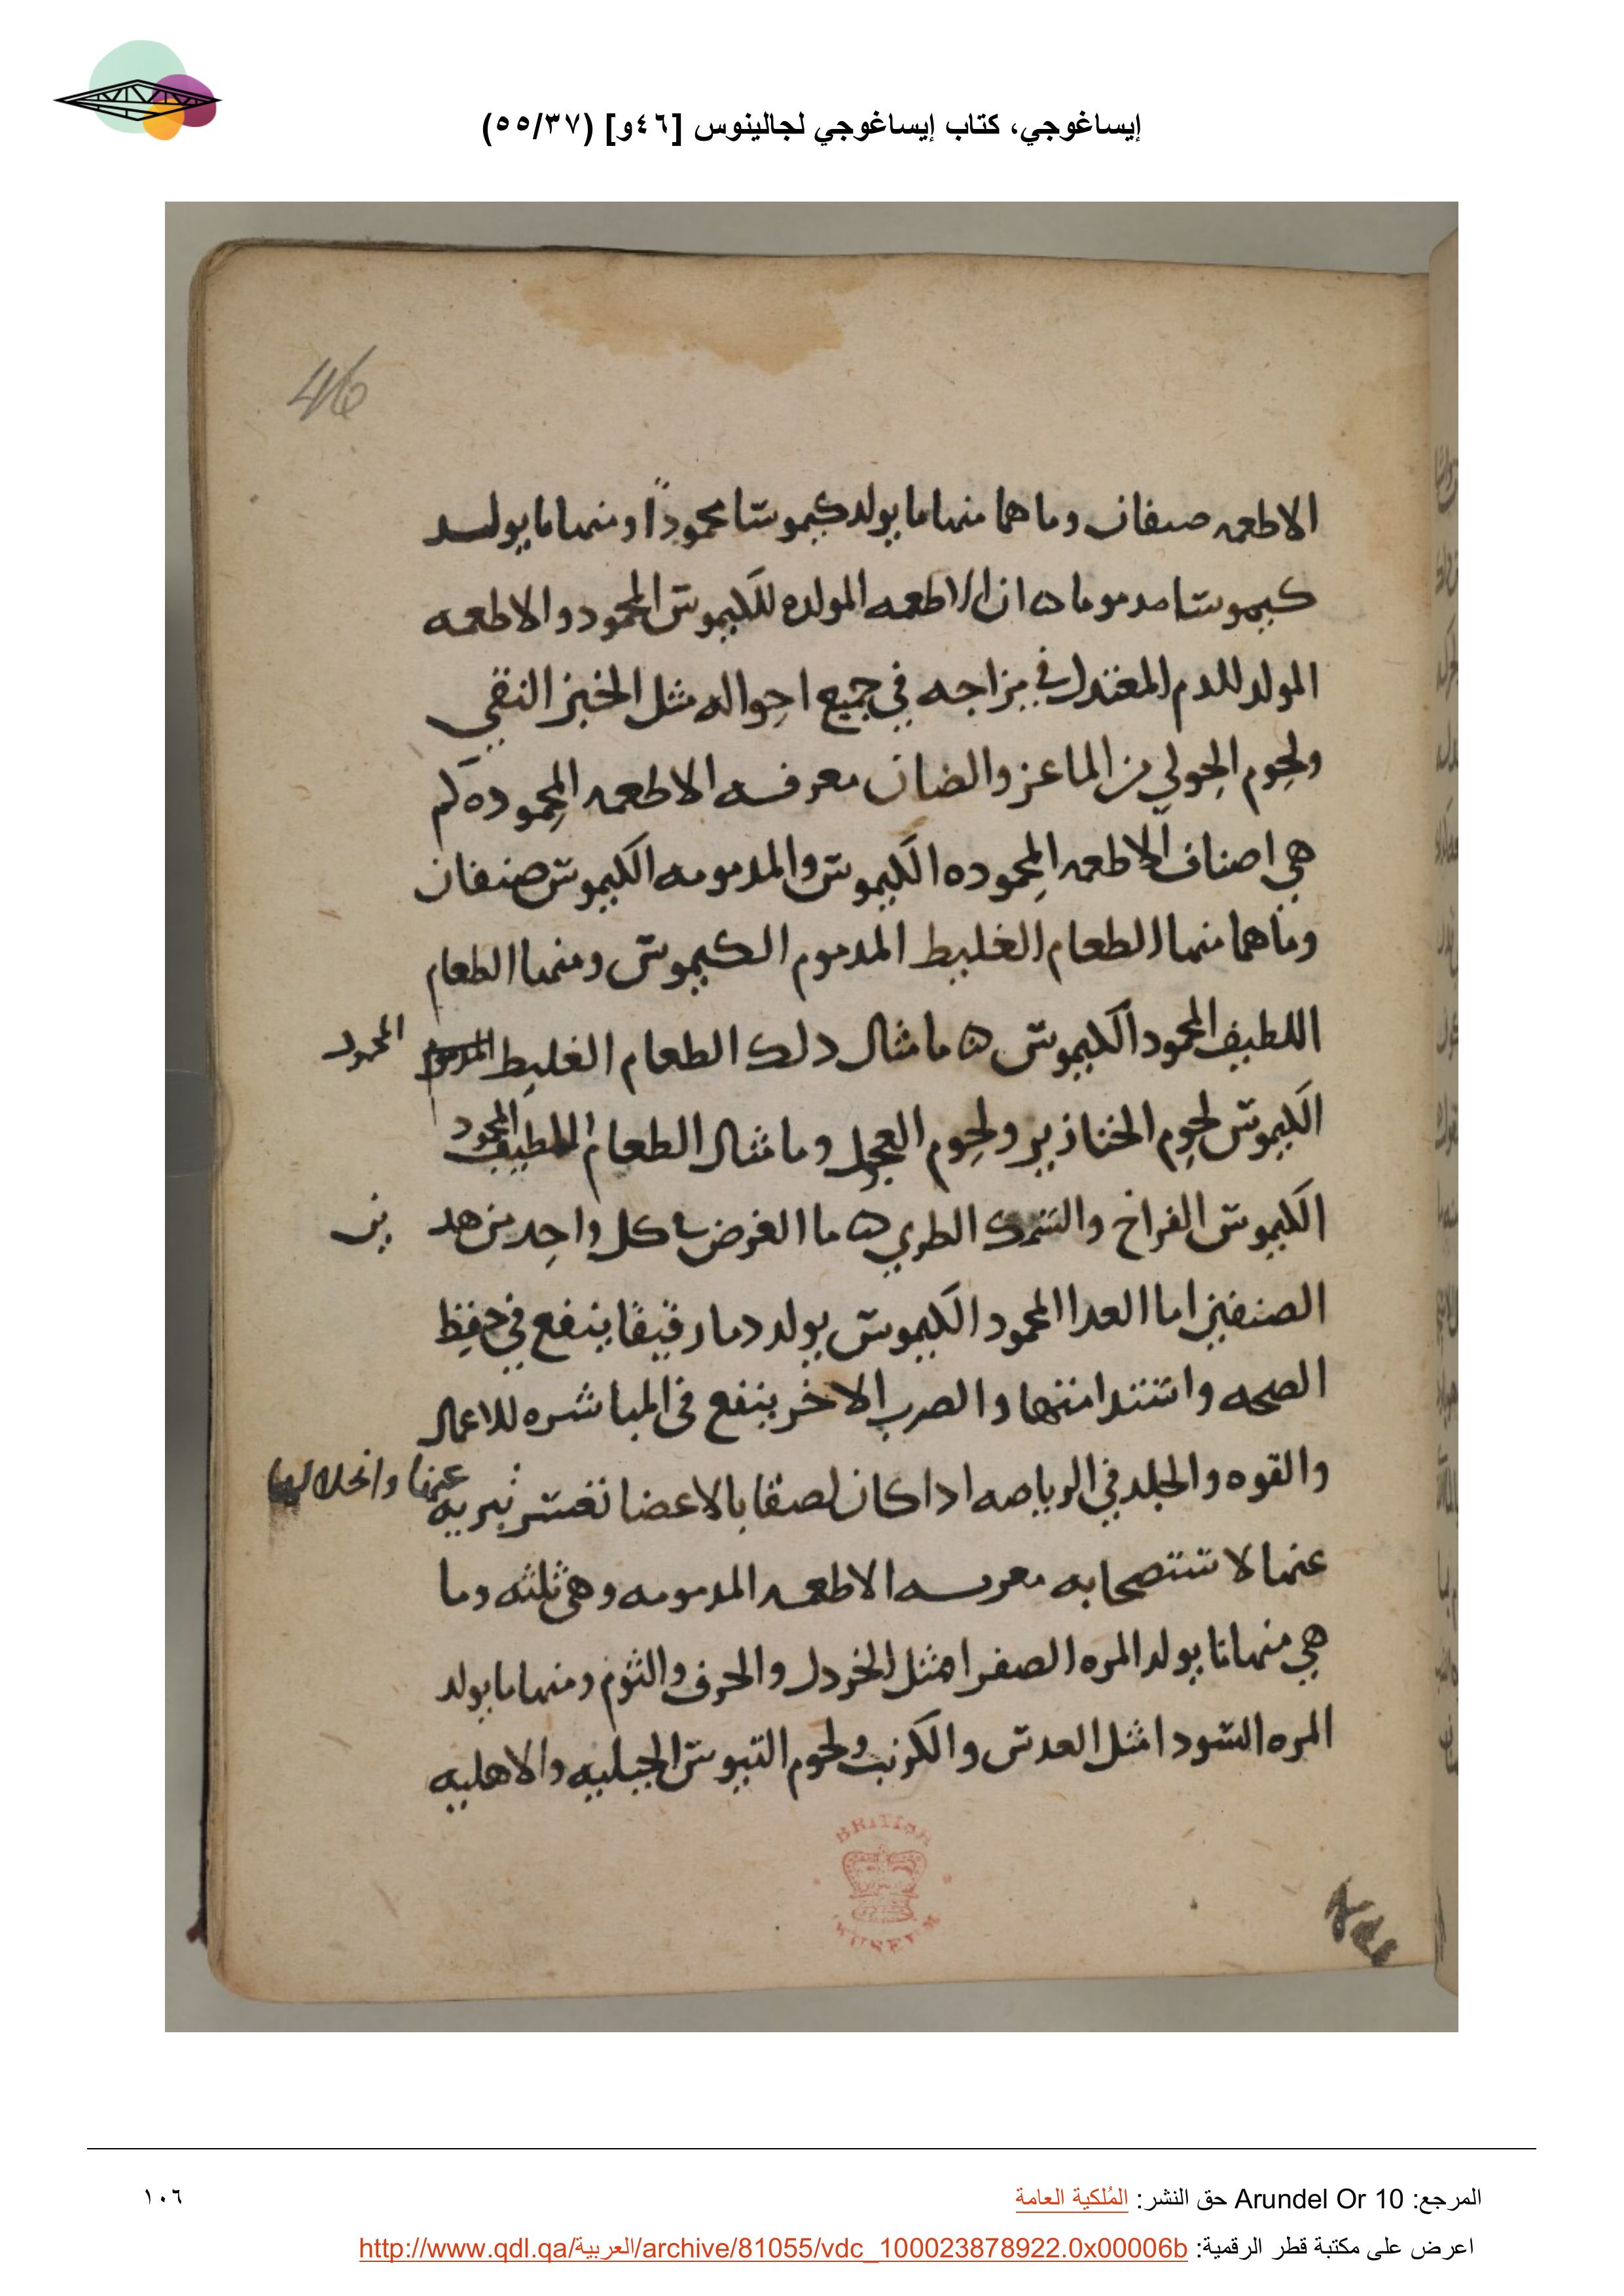 إيساغوجي، كتاب إيساغوجي لجالينوس [٤٦و] (٥٥/٣٧)
46
الاطعمه صنفان وما هما منها ما يولد كيموسا محمودًا ومنها ما يولد
كيموسا مدموما ه ان الاطعمه المولده للكيموس المحمود والاطعمه
المولد للدم المعتدل في مزاجه في جميع احواله مثل الخبز النقي
ولحوم الحولي من الماعز والضان معرفه الاطعمه المحموده كم
هي اصناف الاطعمه المحموده الكيموس والمدمومه الكيموس صنفان
وما هما منها الطعام الغليط المدموم الكيموس ومنها الطعام
اللطيف المحمود الكيموس ه ما مثال دلك الطعام الغليط المدموم المحمود
الكيموس لحوم الخنازير ولحوم العجول وما مثال الطعام اللطيف المحمود
الكيموس الفراخ والسمك الطري ه ما الغرض في كل واحد من هد ين
الصنفين اما العدا المحمود الكيموس يولد دما رقيقا ينفع في حفظ
الصحه واستدامتها والصرب الاخر ينفع في المباشره للاعمال
والقوه والجلد في الرياصه ادا كان لصقا بالاعضا تعسر تبريه عنها وانحلالها
عنها لا تتصحابه معرفه الاطعمه المدمومه وهي ثلثه وما
هي منها ما يولد المره الصفرا مثل الخردل والحرف والثوم ومنها ما يولد
المره السودا مثل العدس والكرنب ولحوم التيوس الجبليه والاهليه
BRITISH
MUSEUM
المرجع: Arundel Or 10 حق النشر: المُلكية العامة
١٠٦
اعرض على مكتبة قطر الرقمية: http://www.qdl.qa/العربية/archive/81055/vdc_100023878922.0x00006b